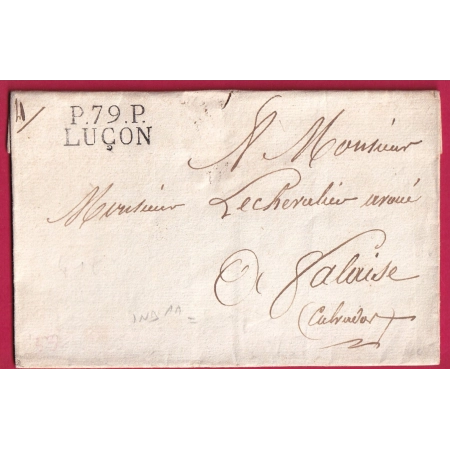 P.79.P.
LUÇON
A Monsieur
Monsieur Lechevalier avoué
A falaise
(Calvados)